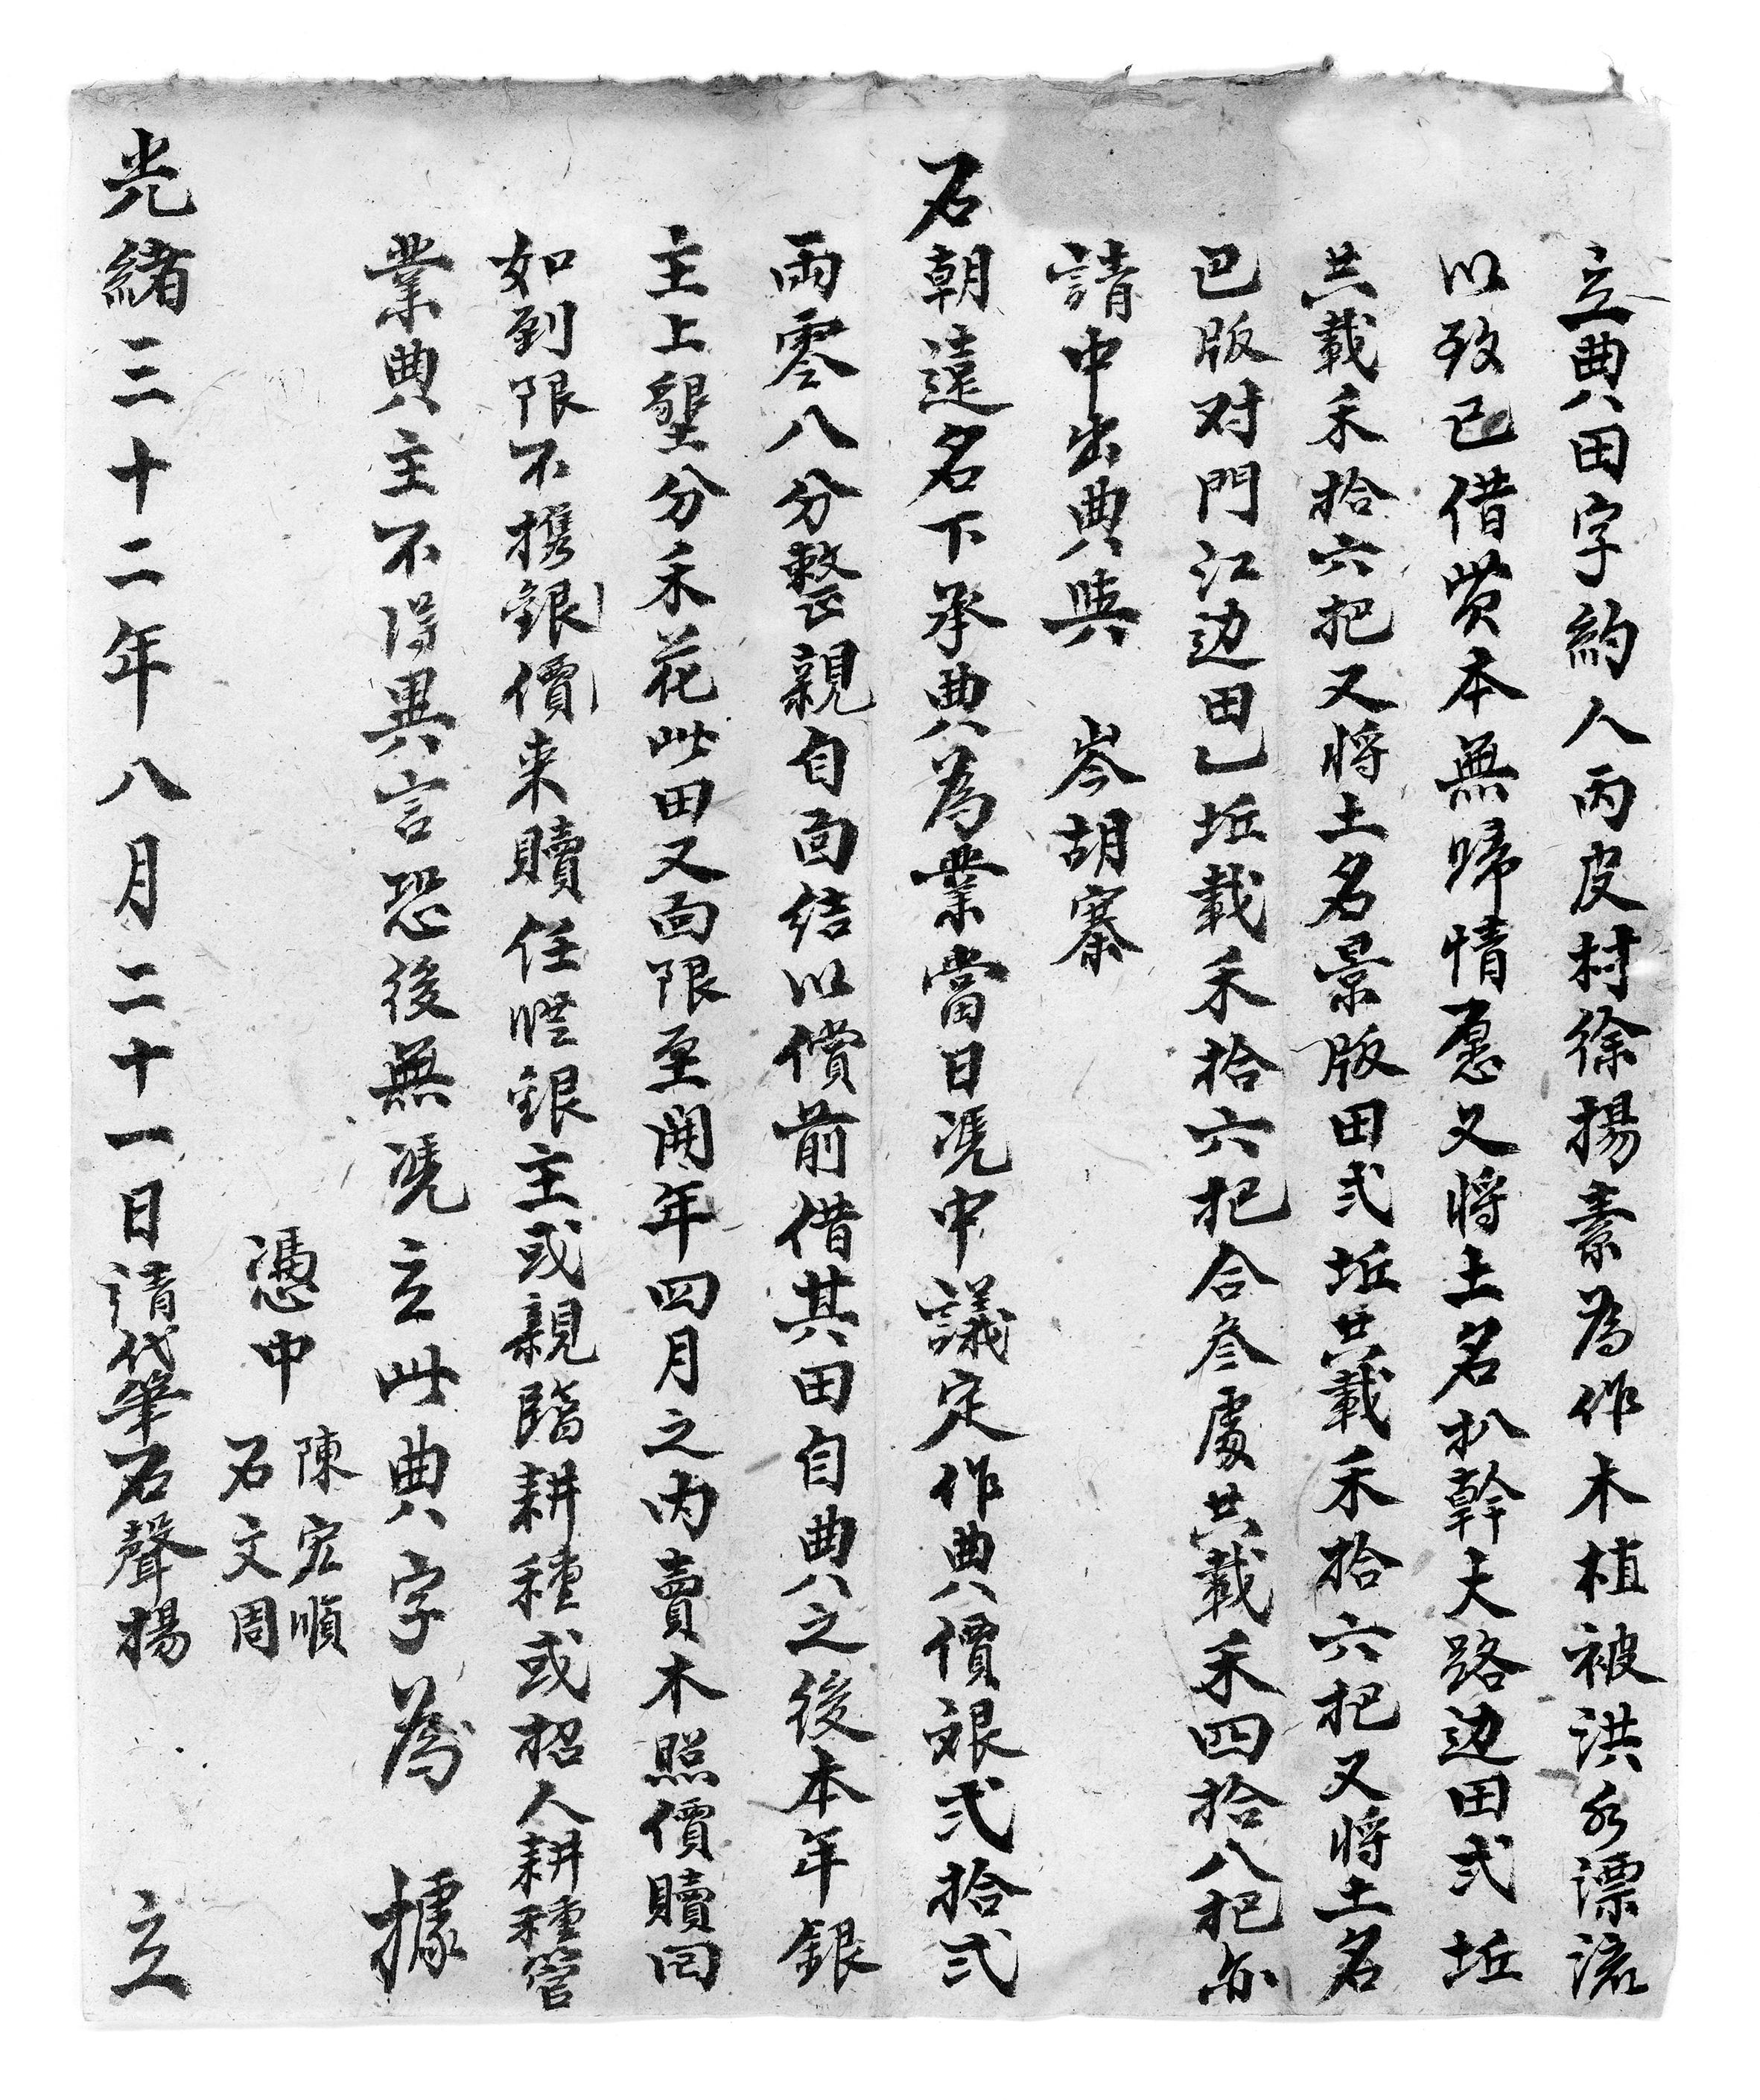 立典田字約人丙皮村徐揚素為作木植被洪水漂流
以致已借贷本無歸情愿又將土名扒幹大路边田弍坵
共載禾拾六把又将土名景版田弍坵共載禾拾六把又将土名
巴版对門江边田乙坵載禾拾六把合叁處共載禾四拾八把亦
請中出典與 岑胡寨
石朝遠名下承典為業當日凭中議定作典價銀弍拾弍
兩零八分整親自面結以償前借其田自典之後本年銀
主上壟分禾花此田又面限至開年四月之内賣木照價贖回
如到限不携銀價来贖任凴銀主或親臨耕種或招人耕種管
業典主不得異言恐後無凴立此典字為 據
憑中 陳宏順
石文周
光緒三十二年八月二十一日請代筆石聲揚 立